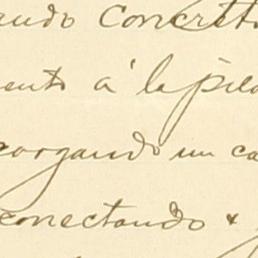 ando concreto
ento á la pila
orgando un ca
conectando &